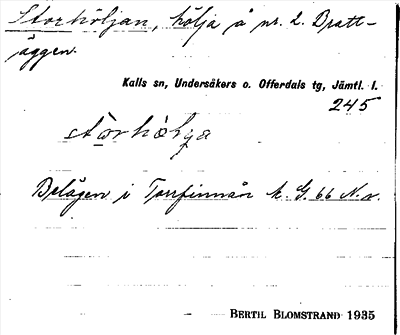 Storhöljan, hölja å nr. 2. Bratt-
äggen.
Kalls sn, Undersåkers o. Offerdals tg, Jämtl. l.
245
stòrhòlja
Belägen i Torrfinnån k. G. 66 N. v.
BERTIL BLOMSTRAND 1935